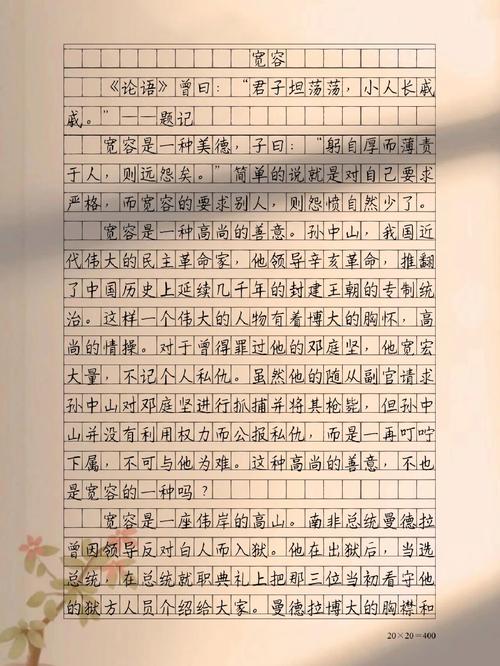 宽容
《论语》曾曰：“君子坦荡荡，小人长戚
戚。”——题记
宽容是一种美德，子曰：“躬自厚而薄责
于人，则远怨矣。”简单的说就是对自己要求
严格，而宽容的要求别人，则怨愤自然少了。
宽容是一种高尚的善意。孙中山，我国近
代伟大的民主革命家，他领导辛亥革命，推翻
了中国历史上延续几千年的封建王朝的专制统
治。这样一个伟大的人物有着博大的胸怀，高
尚的情操。对于曾得罪过他的邓庭坚，他宽宏
大量，不记个人私仇。虽然他的随从副官请求
孙中山对邓庭坚进行抓捕并将其枪毙，但孙中
山并没有利用权力而公报私仇，而是一再叮咛
下属，不可与他为难。这种高尚的善意，不也
是宽容的一种吗？
宽容是一座伟岸的高山。南非总统曼德拉
曾因领导反对白人而入狱。他在出狱后，当选
总统，在总统就职典礼上把那三位当初看守他
的狱方人员介绍给大家。曼德拉博大的胸襟和
20×20=400